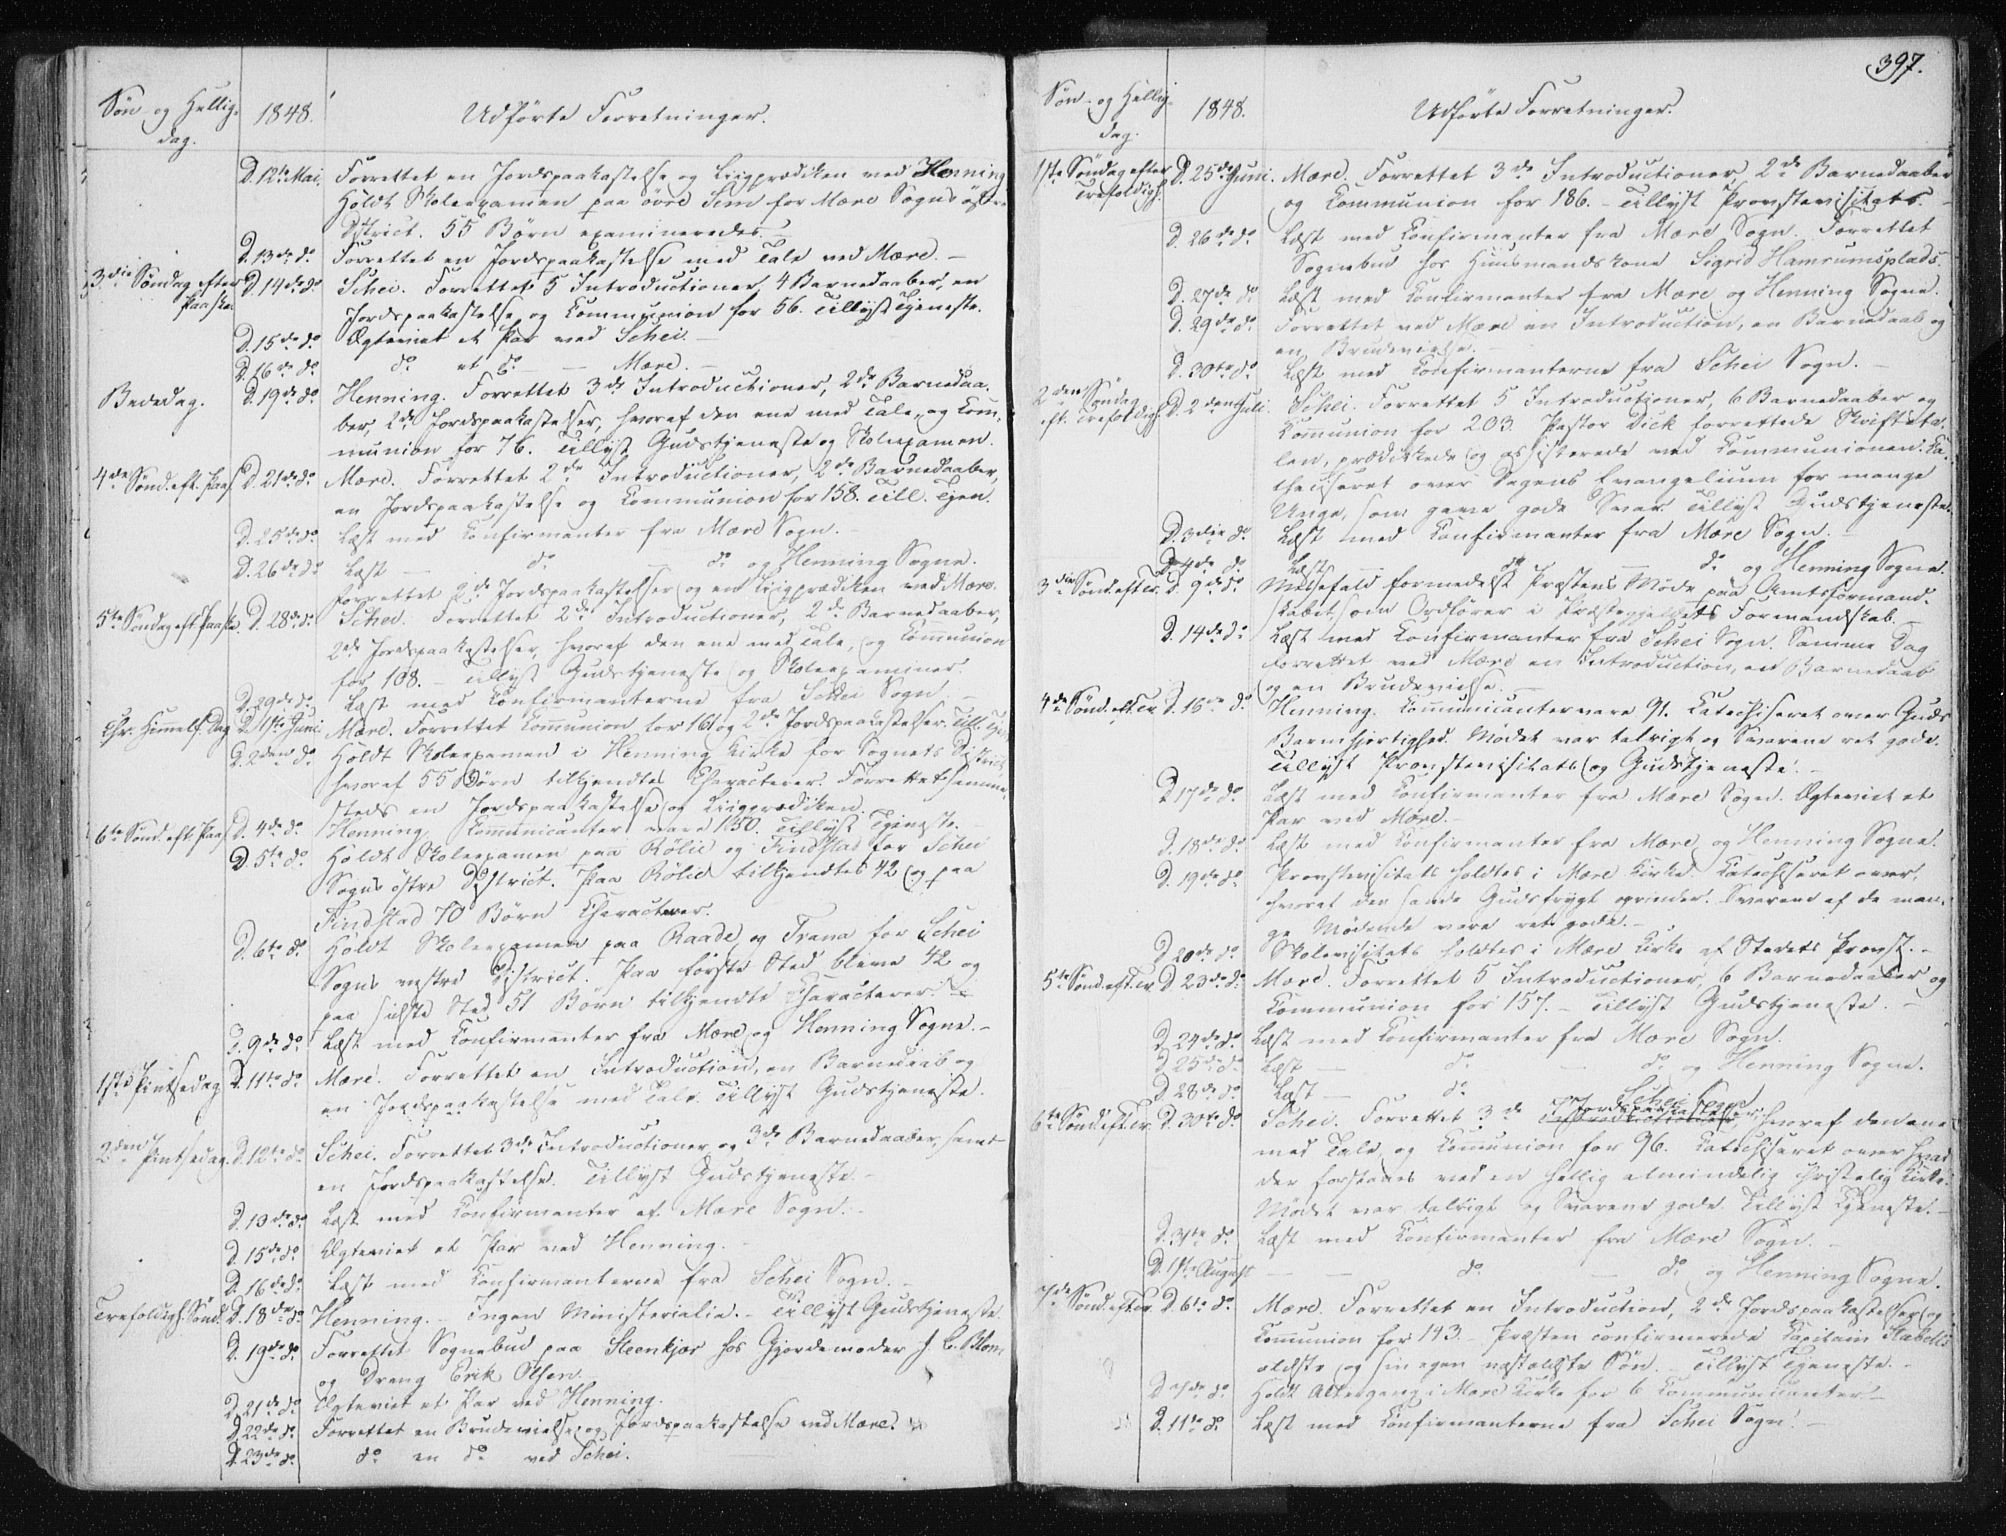 Søn- og Hellig-
dag.
1848.
Udførte Forretninger.
D. 12te Mai. Forrettet en Jordspaakastelse og Liigprædiken ved Henning
Holdt Skoleexamen paa övre Sem for Mære Sogns östre
District. 55 Børn examineredes. -
D. 13de do Forrettet en Jordspaakastelse med Tale ved Mære. -
3die Søndag efter Paaske D. 14de do Schei. Forrettet 5 Introductioner, 4 Barnedaaber, en
Jordspaakastelse og Communion for 56. Tillyst Tjeneste.
D. 15de do Ægteviet et Par ved Schei. -
D. 16de do do et do - Mære. -
Bededag. D. 19de do Henning. Forrettet 3de Introductioner, 2de Barnedaa-
ber, 2de Jordspaakastelser, hvoraf den ene med Tale, og Com-
munion for 76. Tillyst Gudstjeneste og Skoleexamen.
4de Sønd. eft. Paas. D. 21de do Mære. Forrettet 2de Introductioner, 2de Barnedaaber,
en Jordspaakastelse og Communion for 158. Till. Tjen.
D. 25de do Læst med Confirmanter fra Mære Sogn. -
D. 26de do Læst - do - do og Henning Sogne.
Forrettet 2de Jordspaakastelser og en Liigprædiken ved Mære.
5te Søndag eft. Paaske D. 28de do Schei. Forrettet 2de Introductioner, 2de Barnedaaber,
2de Jordspaakastelser, hvoraf den ene med Tale, og Communion
for 108. - Tillyst Gudstjeneste og Skoleexaminer.
D. 29de do Læst med Confirmanterne fra Schei Sogn. -
Chr. Himmelf. Dag D. 1ste Juni Mære. Forrettet Communion for 161 og 2de Jordspaakastelser. Till. Tjen.
D. 2den do Holdt Skoleexamen i Henning Kirke for Sognets District,
hvoraf 55 Børn tilkjendtes Characterer. Forrettet samme-
steds en Jordspaakastelse og Liigprædiken.
6te Sønd. eft. Paas. D. 4de do Henning. Communicanter vare 150. Tillyst Tjeneste.
D. 5te do Holdt Skoleexamen paa Rølie og Findstad for Schei
Sogns östre District. Paa Rølie tilkjendtes 42 og paa
Findstad 70 Børn Characterer.
D. 6te do Holdt Skoleexamen paa Raade og Trana for Schei
Sogns vestre District. Paa første Sted bleve 42 og
paa sidste Sted 51 Børn tilkjendte Characterer. -
D. 9de do Læst med Confirmanter fra Mære og Henning Sogne. -
1ste Pintsedag D. 11te do Mære. Forrettet en Introduction, en Barnedaab og
en Jordspaakastelse med Tale. Tillyst Gudstjeneste.
2den Pintsedag D. 12te do Schei. Forrettet 3de Introductioner og 3de Barnedaaber, samt
en Jordspaakastelse. Tillyst Gudstjeneste. -
D. 13de do Læst med Confirmanter af Mære Sogn. -
D. 15de do Ægteviet et Par ved Henning. -
D. 16de do Læst med Confirmanterne fra Schei Sogn. -
Trefoldigh. Sønd. D. 18de do Henning. - Ingen Ministerialia. - Tillyst Gudstjeneste.
D. 19de do Forrettet Sognebud paa Steenkjær hos Gjordemoder J. C. Blom
og Dreng Erik Olsen.
D. 21de do Ægteviet et Par ved Henning.
D. 22de do Forrettet en Brudevielse og Jordspaakastelse ved Mære.
D. 23de do do en do ved Schei.
397.
Søn- og Hellig-
dag.
1848.
Udførte Forretninger.
1ste Søndag efter Trefoldigh. D. 25de Juni. Mære. Forrettet 3de Introductioner, 2de Barnedaaber
og Communion for 186. - Tillyst Provstevisitats. -
D. 26de do Læst med Confirmanter fra Mære Sogn. Forrettet
Sognebud hos Huusmandskone Sigrid Hamrumsplads.
D. 27de do Læst med Confirmanter fra Mære og Henning Sogne.
D. 29de do Forrettet ved Mære en Introduction, en Barnedaab og
en Brudevielse. -
D. 30te do Læst med Confirmanterne fra Schei Sogn. -
2den Søndag eft. Trefoldigh. D. 2den Juli. Schei. Forrettet 5 Introductioner, 6 Barnedaaber og
Communion for 203. Pastor Dick forrettede Skrifteta-
len, prædikede og assisterede ved Communionen. Ca-
thechiseret over Dagens Evangelium for mange
Unge, som gave gode Svar. Tillyst Gudstjeneste.
D. 3die do Læst med Confirmanter fra Mære Sogn. -
D. 4de do Læst - do - do og Henning Sogne.
3die Sønd. eft. Tr. D. 9de do Messefald formedelst Præstens Møde paa Amtsformand-
skabet som Ordfører i Præstegjeldets Formandskab. -
D. 14de do Læst med Confirmanter fra Schei Sogn. Samme Dag
forrettet ved Mære en Introduction, en Barnedaab
og en Brudevielse. -
4de Sønd. eft. Tr. D. 16de do Henning. Communicanter vare 91. Catechiseret over Guds
Barmhjertighed. Mødet var talrigt og Svarene ret gode.
Tillyst Provstevisitats og Gudstjeneste. -
D. 17de do Læst med Confirmanter fra Mære Sogn. Ægteviet et
Par ved Mære. -
D. 18de do Læst med Confirmanter fra Mære og Henning Sogne.
D. 19de do Provstevisitats holdtes i Mære Kirke. Catechiseret over,
hvoraf den sande Gudsfrygt oprinder. Svarene af de man-
ge Mødende vare ret gode. -
D. 20de do Skolevisitats holdtes i Mære Kirke af Stedets Provst. -
5te Sønd. eft. Tr. D. 23de do Mære. Forrettet 5 Introductioner, 6 Barnedaaber og
Communion for 157. - Tillyst Gudstjeneste. -
D. 24de do Læst med Confirmanter fra Mære Sogn.
D. 25de do Læst - do - do og Henning Sogne.
D. 28de do Læst - do Schei Sogn
6te Sønd. eft. Tr. D. 30te do Schei. Forrettet 3de Jordspaakastelser, hvoraf den ene
med Tale og Communion for 96. Catechiseret over hvad
der forstaaes ved en hellig almindelig christelig Kirke.
Mødet var talrigt og Svarene gode. Tillyst Tjeneste. -
D. 31te do Læst med Confirmanter fra Mære Sogn. -
D. 1ste August - do - do og Henning Sogne.
7de Sønd. eft. Tr. D. 6te do Mære. Forrettet en Introduction, 2de Jordspaakastelser og
Communion for 143. - Præsten confirmerede Capitain
ældste og sin egen næstældste Søn. - Tillyst Tjeneste. -
D. 7de do Holdt Altergang i Mære Kirke for 6 Communicanter. -
D. 11te do Læst med Confirmanterne fra Schei Sogn. -